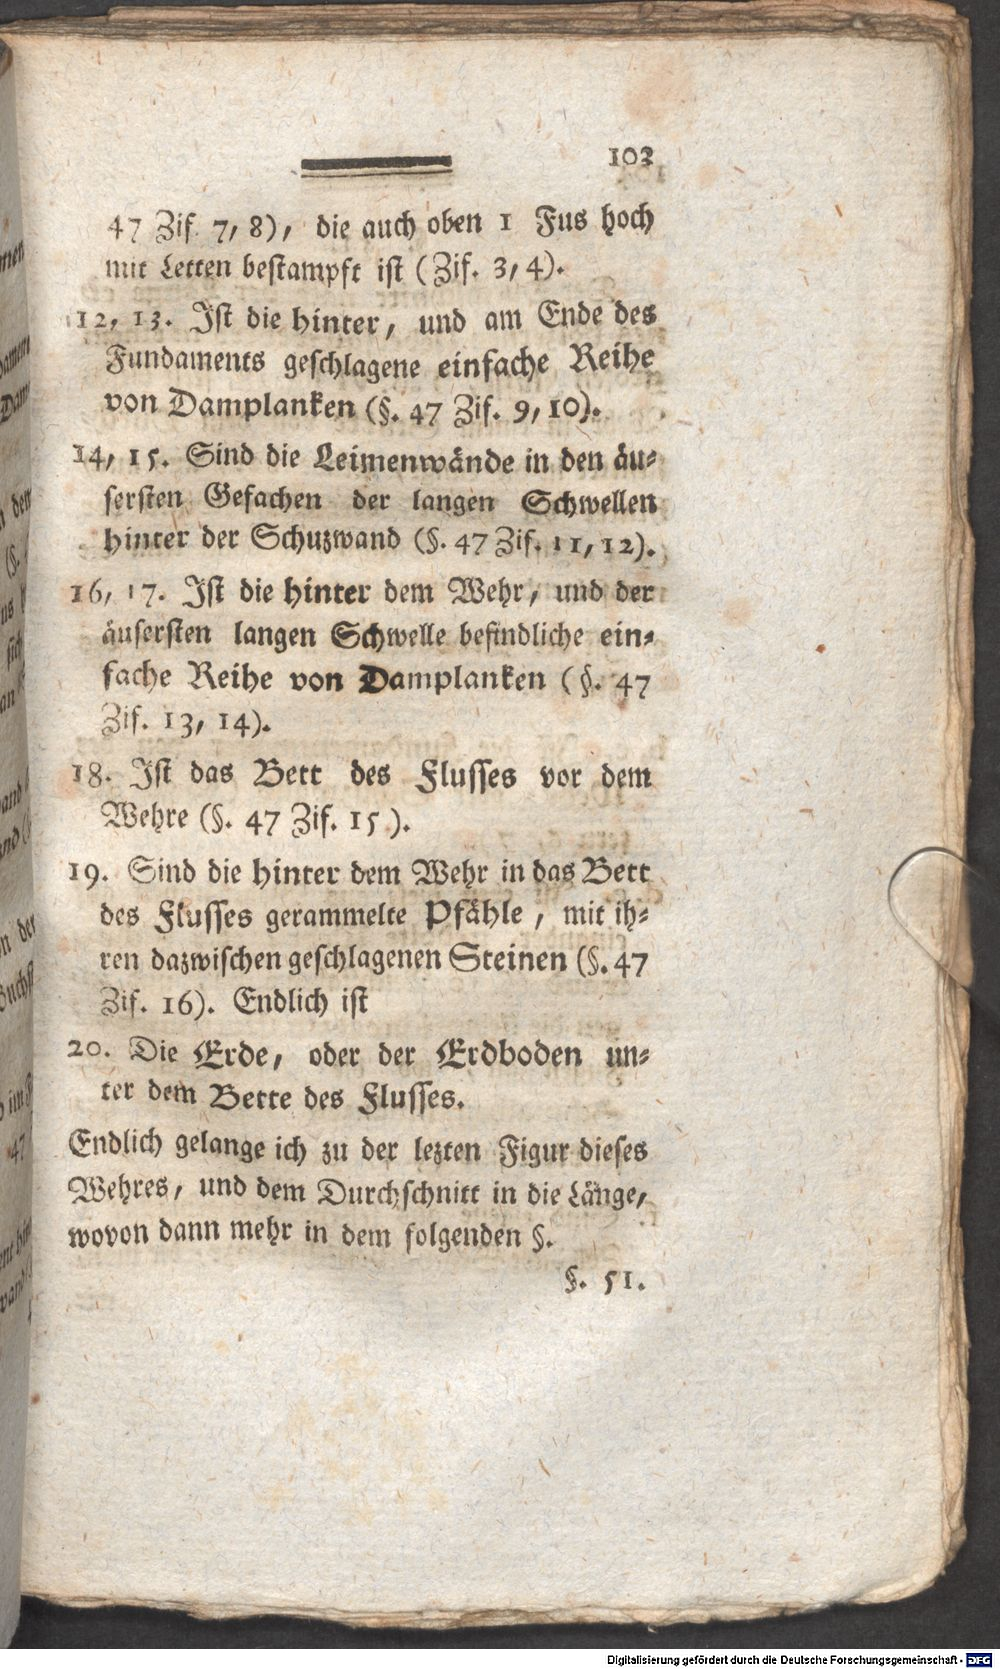 103
47 Zif. 7, 8), die auch oben 1 Fus hoch
mit Letten bestampft ist (Zif. 3, 4).
12, 13. Ist die hinter, und am Ende des
Fundaments geschlagene einfache Reihe
von Damplanken (§. 47 Zif. 9, 10).
14, 15. Sind die Leimenwände in den äu-
sersten Gefachen der langen Schwellen
hinter der Schuzwand (§. 47 Zif. 11, 12).
16, 17. Ist die hinter dem Wehr, und der
äusersten langen Schwelle befindliche ein-
fache Reihe von Damplanken (§. 47
Zif. 13, 14).
18. Ist das Bett des Flusses vor dem
Wehre (§. 47 Zif. 15).
19. Sind die hinter dem Wehr in das Bett
des Flusses gerammelte Pfähle, mit ih-
ren dazwischen geschlagenen Steinen (§. 47
Zif. 16). Endlich ist
20. Die Erde, oder der Erdboden un-
ter dem Bette des Flusses.
Endlich gelange ich zu der lezten Figur dieses
Wehres, und dem Durchschnitt in die Länge,
wovon dann mehr in dem folgenden §.
§. 51.
Digitalisierung gefördert durch die Deutsche Forschungsgemeinschaft - DFG